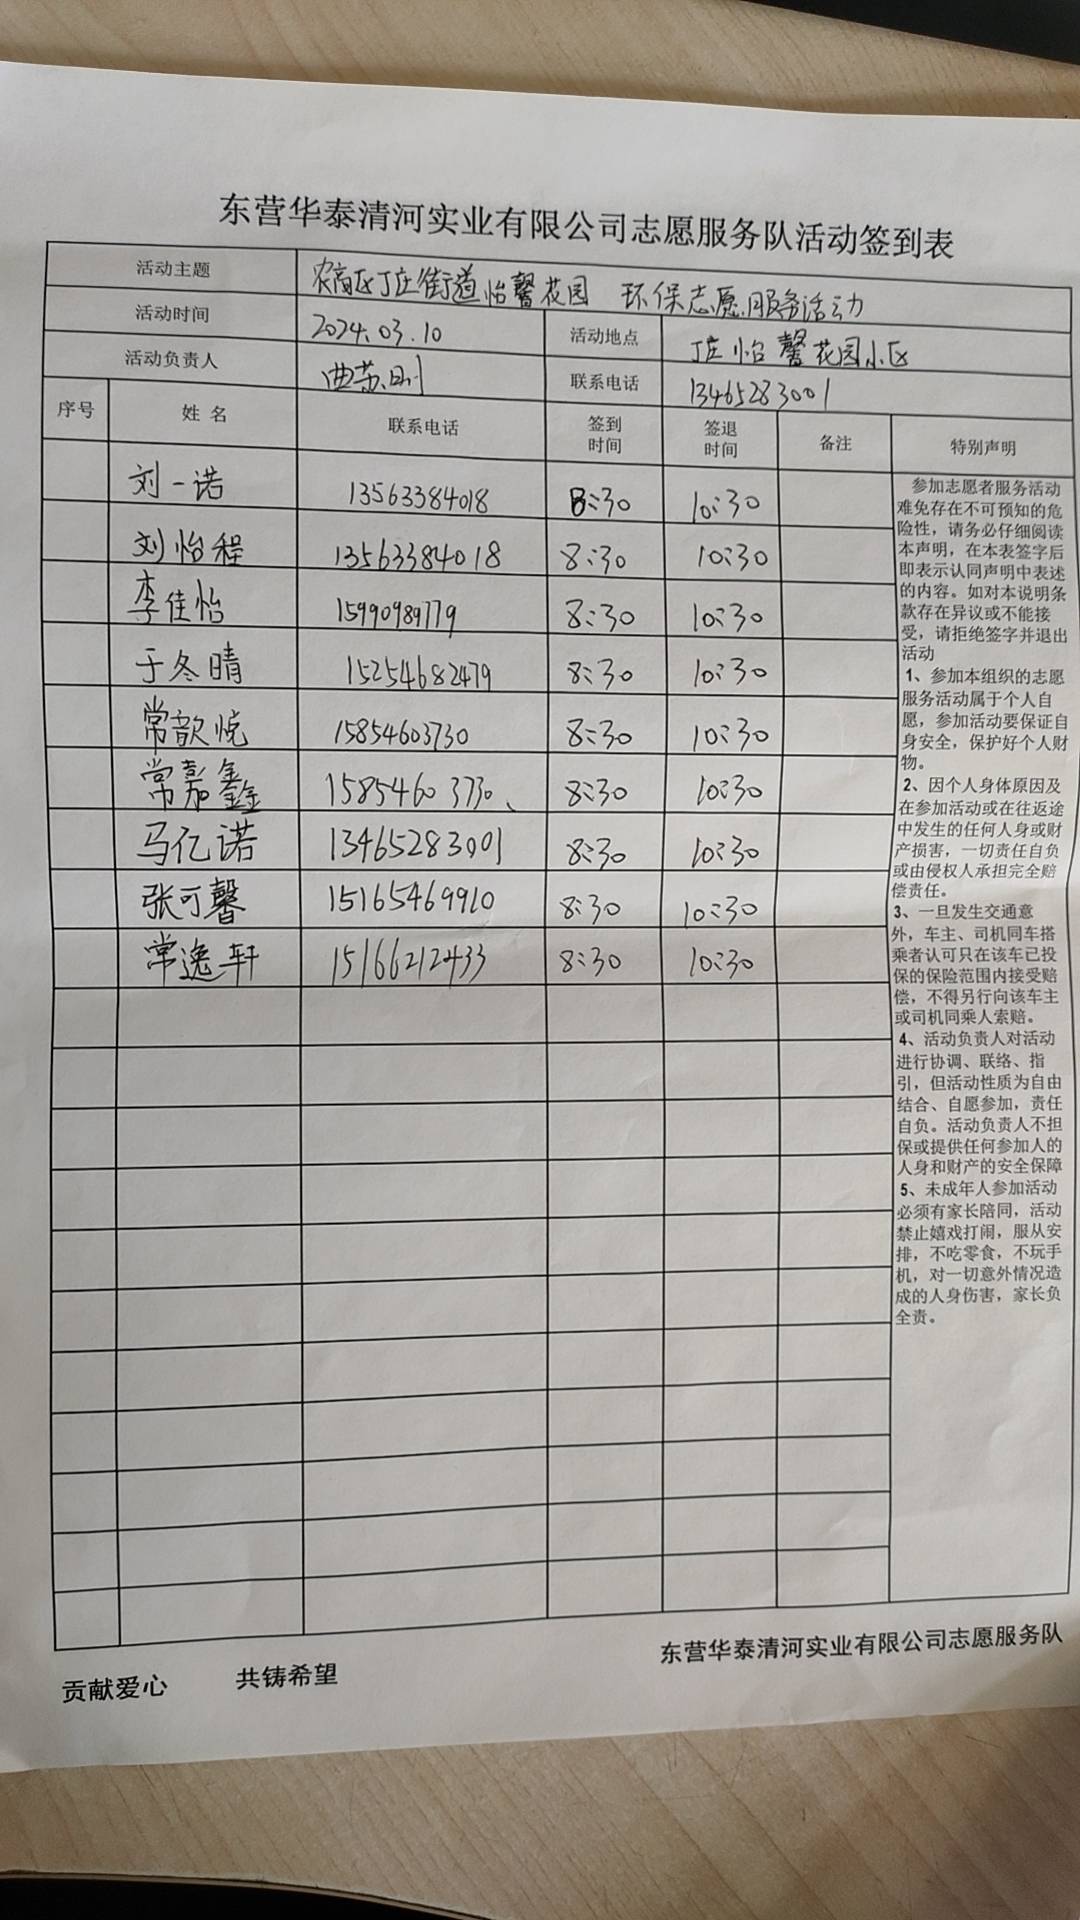 东营华泰清河实业有限公司志愿服务队活动签到表
活动主题 农高区丁庄街道怡馨花园 环保志愿服务活动
活动时间 2024.03.10 活动地点 丁庄怡馨花园小区
活动负责人 曲苏刚 联系电话 13465283001
序号 姓名 联系电话 签到时间 签退时间 备注 特别声明
刘一诺 13563384018 8:30 10:30
刘怡程 13563384018 8:30 10:30
李佳怡 15990989779 8:30 10:30
于冬晴 15254682479 8:30 10:30
常歆悦 15854603730 8:30 10:30
常嘉鑫 15854603730、 8:30 10:30
马亿诺 13465283001 8:30 10:30
张可馨 15165469910 8:30 10:30
常逸轩 15166212433 8:30 10:30
参加志愿者服务活动
难免存在不可预知的危
险性，请务必仔细阅读
本声明，在本表签字后
即表示认同声明中表述
的内容。如对本说明条
款存在异议或不能接
受，请拒绝签字并退出
活动
1、参加本组织的志愿
服务活动属于个人自
愿，参加活动要保证自
身安全，保护好个人财
物。
2、因个人身体原因及
在参加活动或在往返途
中发生的任何人身或财
产损害，一切责任自负
或由侵权人承担完全赔
偿责任。
3、一旦发生交通意
外，车主、司机同车搭
乘者认可只在该车已投
保的保险范围内接受赔
偿，不得另行向该车主
或司机同乘人索赔。
4、活动负责人对活动
进行协调、联络、指
引，但活动性质为自由
结合、自愿参加，责任
自负。活动负责人不担
保或提供任何参加人的
人身和财产的安全保障
5、未成年人参加活动
必须有家长陪同，活动
禁止嬉戏打闹，服从安
排，不吃零食，不玩手
机，对一切意外情况造
成的人身伤害，家长负
全责。
贡献爱心 共铸希望 东营华泰清河实业有限公司志愿服务队